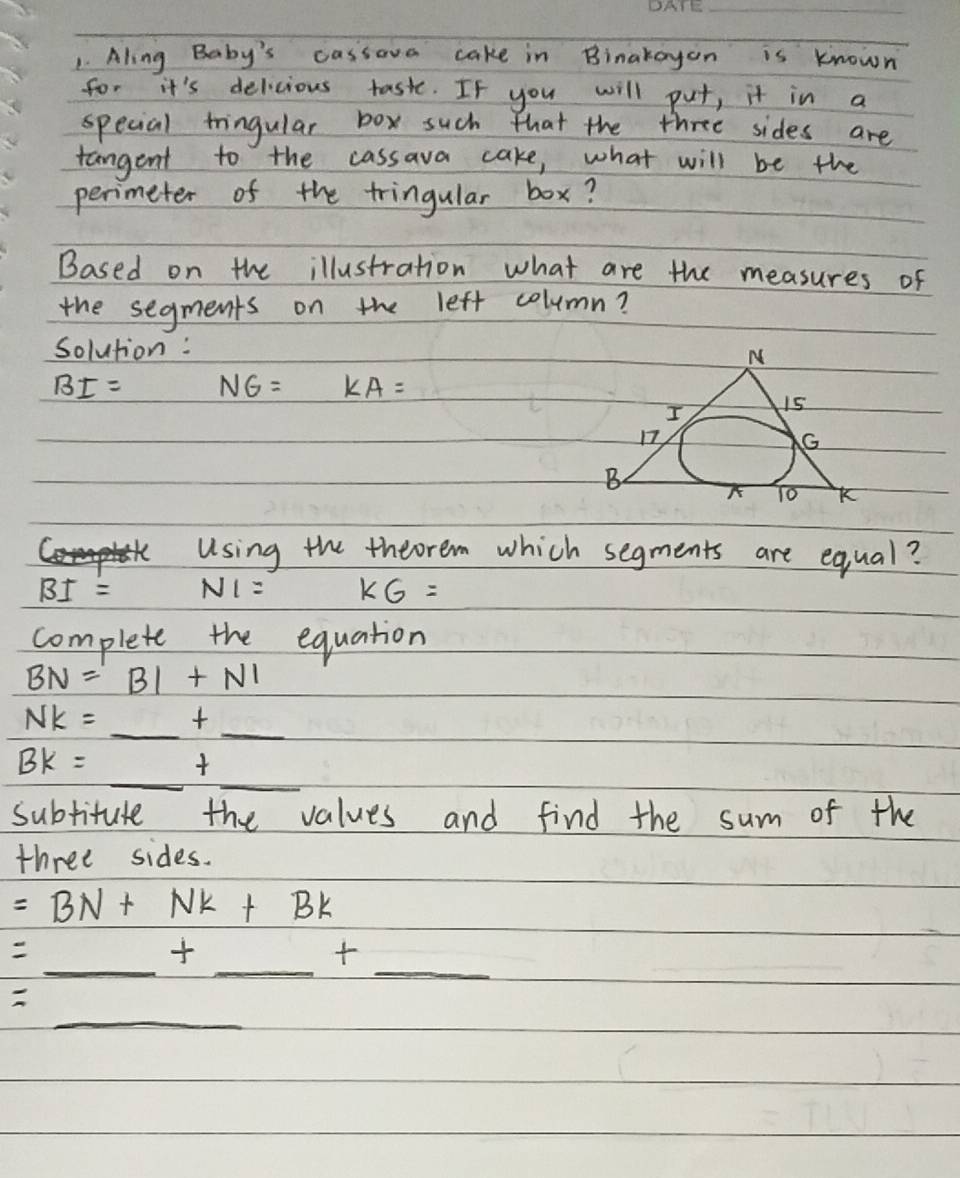 DATE
1. Aling Baby's cassava cake in Binakayan is known
for it's delicious taste. If you will put, it in a
special tringular box such that the three sides are
tangent to the cassava cake, what will be the
perimeter of the tringular box?
Based on the illustration what are the measures of
the segments on the left column?
Solution:
BI = NG = KA =
N
15
I
17
G
B
A 10 K
Using the theorem which segments are equal?
BI = NI = KG =
complete the equation
BN = BI + NI
NK = ___ + ___
BK = ___ + ___
subtitute the values and find the sum of the
three sides.
= BN + NK + BK
= ___ + ___ + ___
= ___